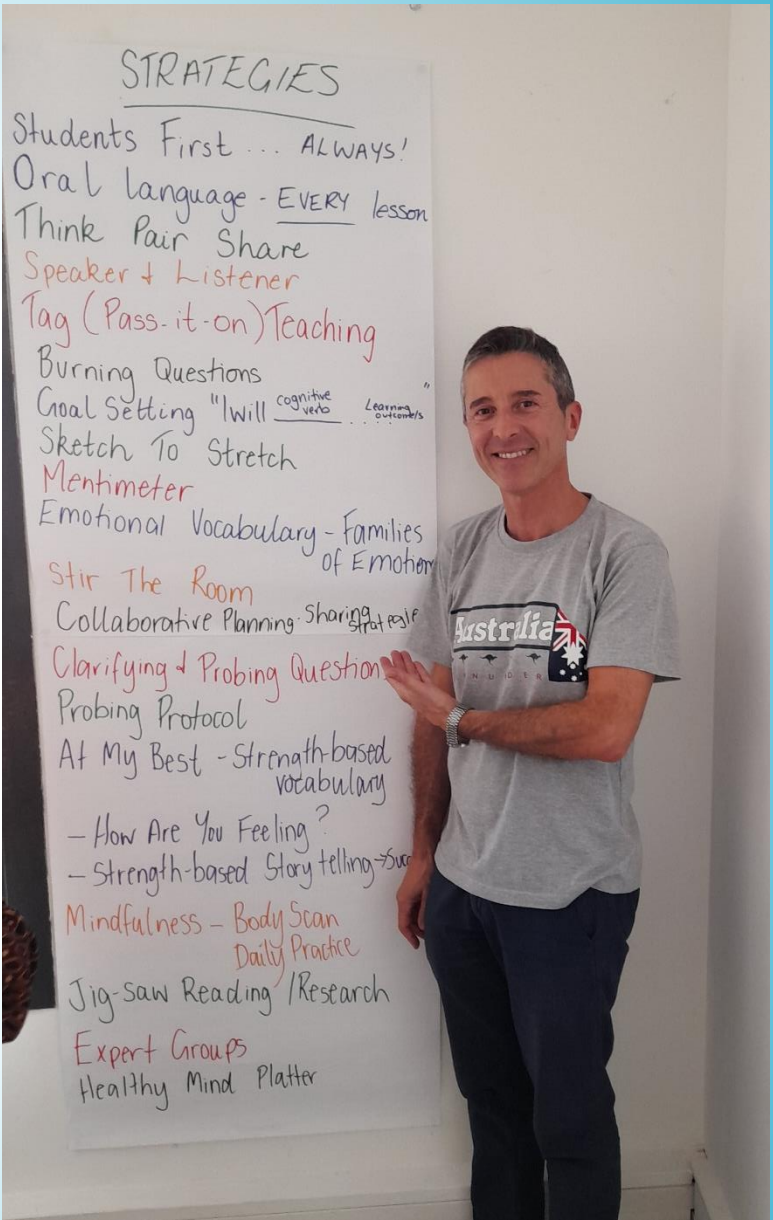 STRATEGIES
Students First ... ALWAYS!
Oral language - EVERY lesson
Think Pair Share
Speaker & Listener
Tag (Pass-it-on) Teaching
Burning Questions
Goal Setting "I Will cognitive verb .... Learning outcome/s"
Sketch To Stretch
Mentimeter
Emotional Vocabulary - Families
of Emotion
Stir The Room
Collaborative Planning - Sharing
Strategie
Clarifying & Probing Question
Probing Protocol
At My Best - Strength-based
vocabulary
- How Are You Feeling?
- Strength-based Story telling → Suc
Mindfulness - Body Scan
Daily Practice
Jig-saw Reading / Research
Expert Groups
Healthy Mind Platter
Australia